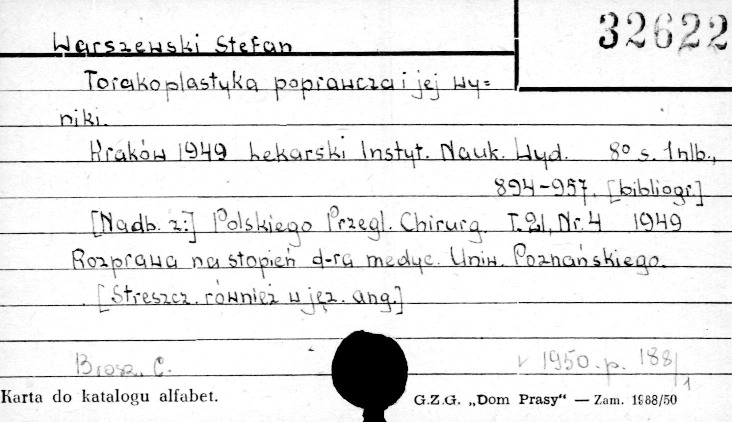 32622
Warszewski Stefan
Torakoplastyka poprawcza i jej wy=
niki.
Kraków 1949 Lekarski Instyt. Nauk. Wyd. 8º s. 1 nlb.,
894-957. [bibliogr]
[Nadb. z:] Polskiego Przegl. Chirurg. T. 21, Nr. 4 1949
Rozprawa na stopień d-ra medyc. Uniw. Poznańskiego.
[Streszcz. również w jęz. ang.]
Brosz. C.
1950. p. 188/1
Karta do katalogu alfabet.
G.Z.G. „Dom Prasy“ — Zam. 1988/50